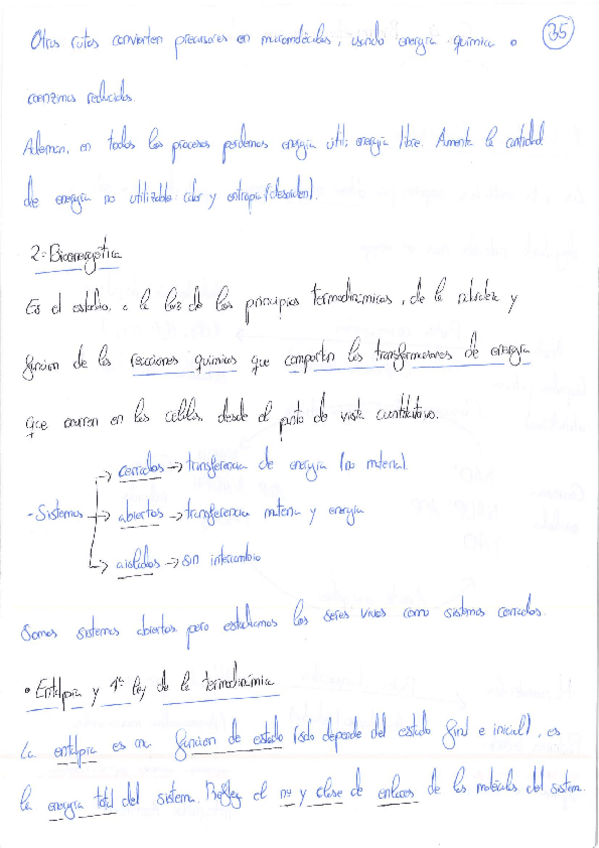 35
Otras rutas convierten precursores en macromoléculas, usando energía química o
coenzimas reducidas.
Ademas, en todos los procesos perdemos energía útil: energía libre. Amenta la cantidad
de energía no utilizable calor y entropía (desorden).
2.- Bioenergética
Es el estudio, a la luz de los principios termodinámicos, de la naturaleza y
funcion de las reacciones químicas que comportan las transformaciones de energía
que ocurren en las celulas desde el punto de vista cuantitativo.
cerrados → transferencia de energía (no materia).
- Sistemas → abiertos → transferencia materia y energía
aislados → sin intercambio
Somos sistemas abiertos pero estudiamos los seres vivos como sistemas cerrados.
• Entalpía y 1ª ley de la termodinámica
La entalpía es una funcion de estado (solo depende del estado final e inicial), es
la energía total del sistema. Refleja el nº y clase de enlaces de las moléculas del sistema.